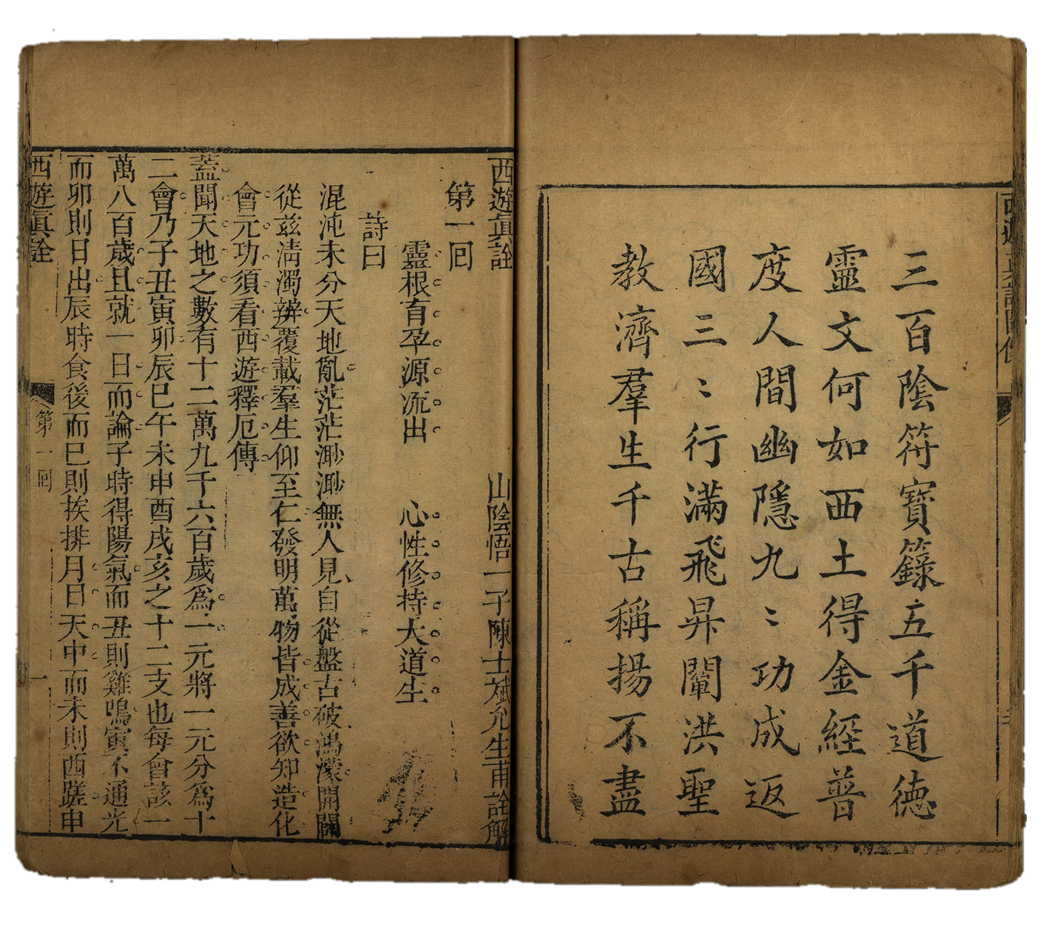 三百陰符寶籙五千道德
靈文何如西土得金經普
度人間幽隱九〻功成返
國三〻行滿飛昇闡洪聖
教濟羣生千古稱揚不盡
西遊眞詮
山陰悟一子陳士斌允生甫詮解
第一回
靈根育孕源流出　心性修持大道生
詩曰
混沌未分天地亂茫茫渺渺無人見自從盤古破鴻濛開闢
從兹淸濁辨覆載羣生仰至仁發明萬物皆成善欲知造化
會元功須看西遊釋厄傳
蓋聞天地之數有十二萬九千六百歲爲一元將一元分爲十
二會乃子丑寅卯辰巳午未申酉戌亥之十二支也每會該一
萬八百歲且就一日而論子時得陽氣而丑則雞鳴寅不通光
而卯則日出辰時食後而巳則挨排月日天中而未則西蹉申
西遊眞詮
第一回
一